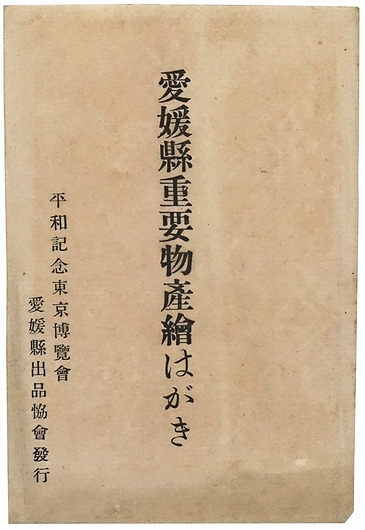 愛媛縣重要物產繪はがき
平和記念東京博覽會
愛媛縣出品協會發行